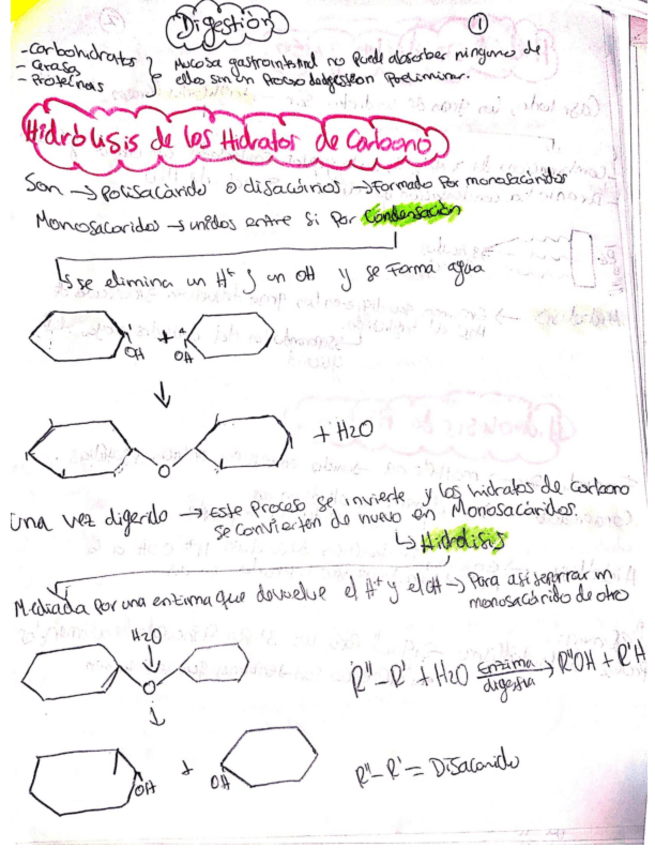 Digestión
①
-Carbohidratos
- Grasas
- Proteínas
Mucosa gastrointestinal no puede absorber ninguno de
ellos sin un proceso de digestion Preliminar.
Hidrólisis de los Hidratos de Carbono
Son → Polisacárido o disacáridos → Formado Por monosacáridos
Monosacaridos → unidos entre si Por Condensación
↳ se elimina un H⁺ y un OH y se Forma agua
OH + OH
↓
O + H2O
Una vez digerido → Este Proceso se invierte y los hidratos de Carbono
se convierten de nuevo en Monosacáridos.
↳ Hidrolisis
Mediada Por una enzima que devuelve el H⁺ y el OH → Para asi separar un
monosacárido de otro
H2O
↓
O
↓
R''-R' + H2O enzima digestiva → R''OH + R'H
OH + OH
R''-R' = Disacarido